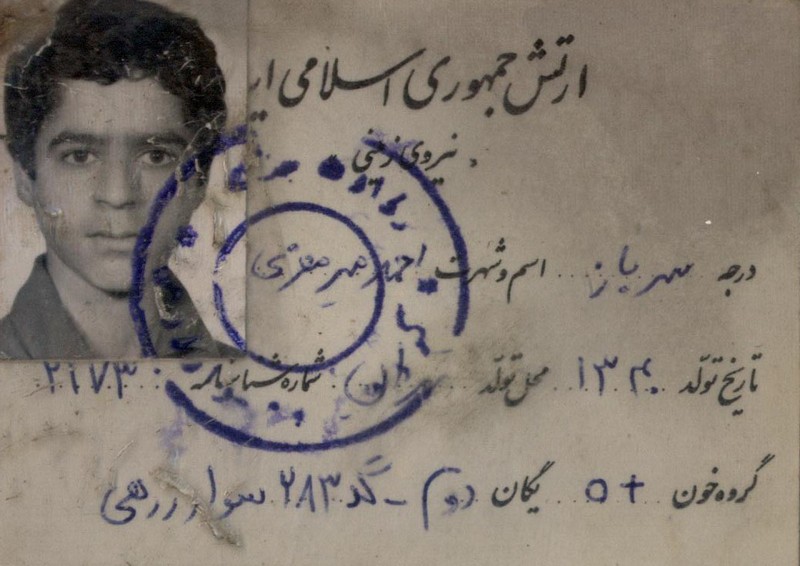 ارتش جمهوری اسلامی ایر
نیروی زمینی
درجه سرباز اسم و شهرت احمد
تاریخ تولد ۱۳۴۰ محل تولد تهران شماره شناسنامه ۲۱۷۳
گروه خون o+ یگان دوم - گد ۲۸۳ سوار زرهی